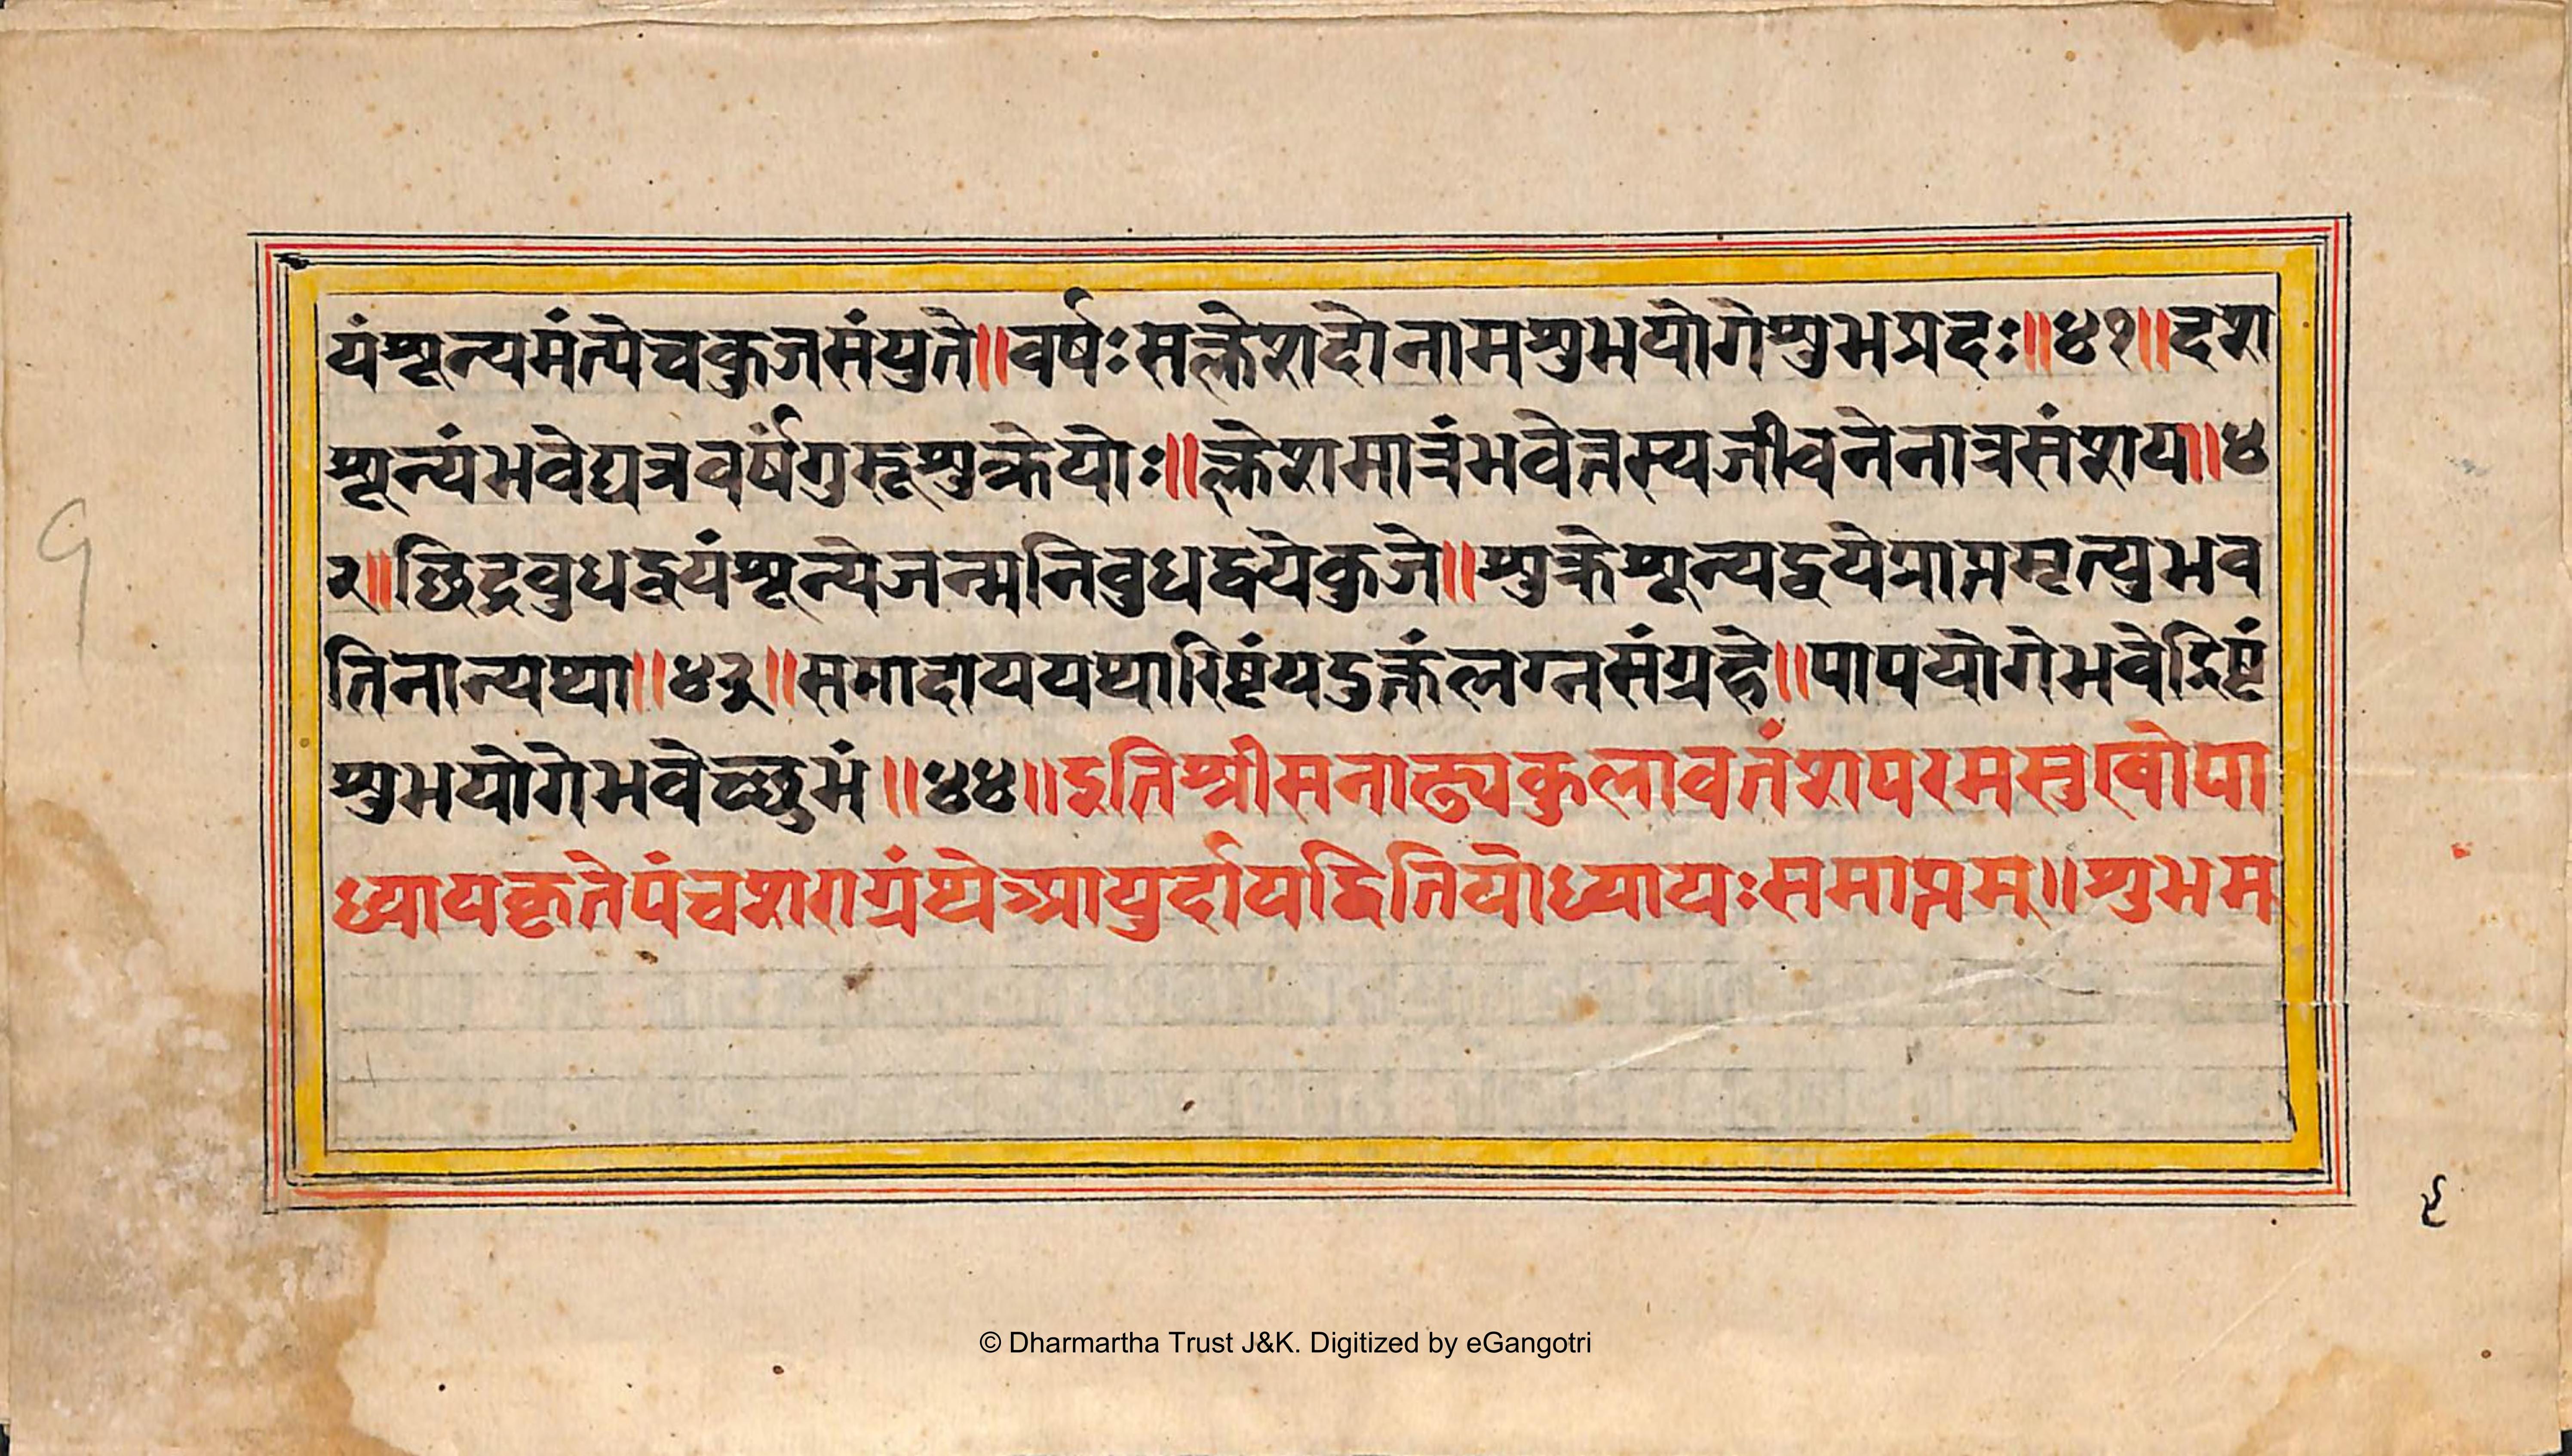 यंशून्यमंत्येचकुजसंयुते॥वर्षःसक्लेशदोनामशुभयोगेशुभप्रदः॥४१॥दश
शून्यंभवेद्यत्रवर्षंगुरूशुक्रेयोः॥क्लेशमात्रंभवेत्तस्यजीवनेनात्रसंशय॥४
२॥छिद्रबुधद्वयंशून्येजन्मनिबुधद्वयेकुजे॥शुक्रेशून्यद्वयेप्राप्तमृत्युभव
तिनान्यथा॥४३॥समादाययथारिष्टंयदुक्तंलग्नसंग्रहे॥पापयोगेभवेद्रिष्टं
शुभयोगेभवेच्छुभं॥४४॥इतिश्रीसनाढ्यकुलावतंशपरमसुखोपा
ध्यायकृतेपंचशराग्रंथेआयुर्दायद्वितियोध्यायःसमाप्तम्॥शुभम
९
© Dharmartha Trust J&K. Digitized by eGangotri